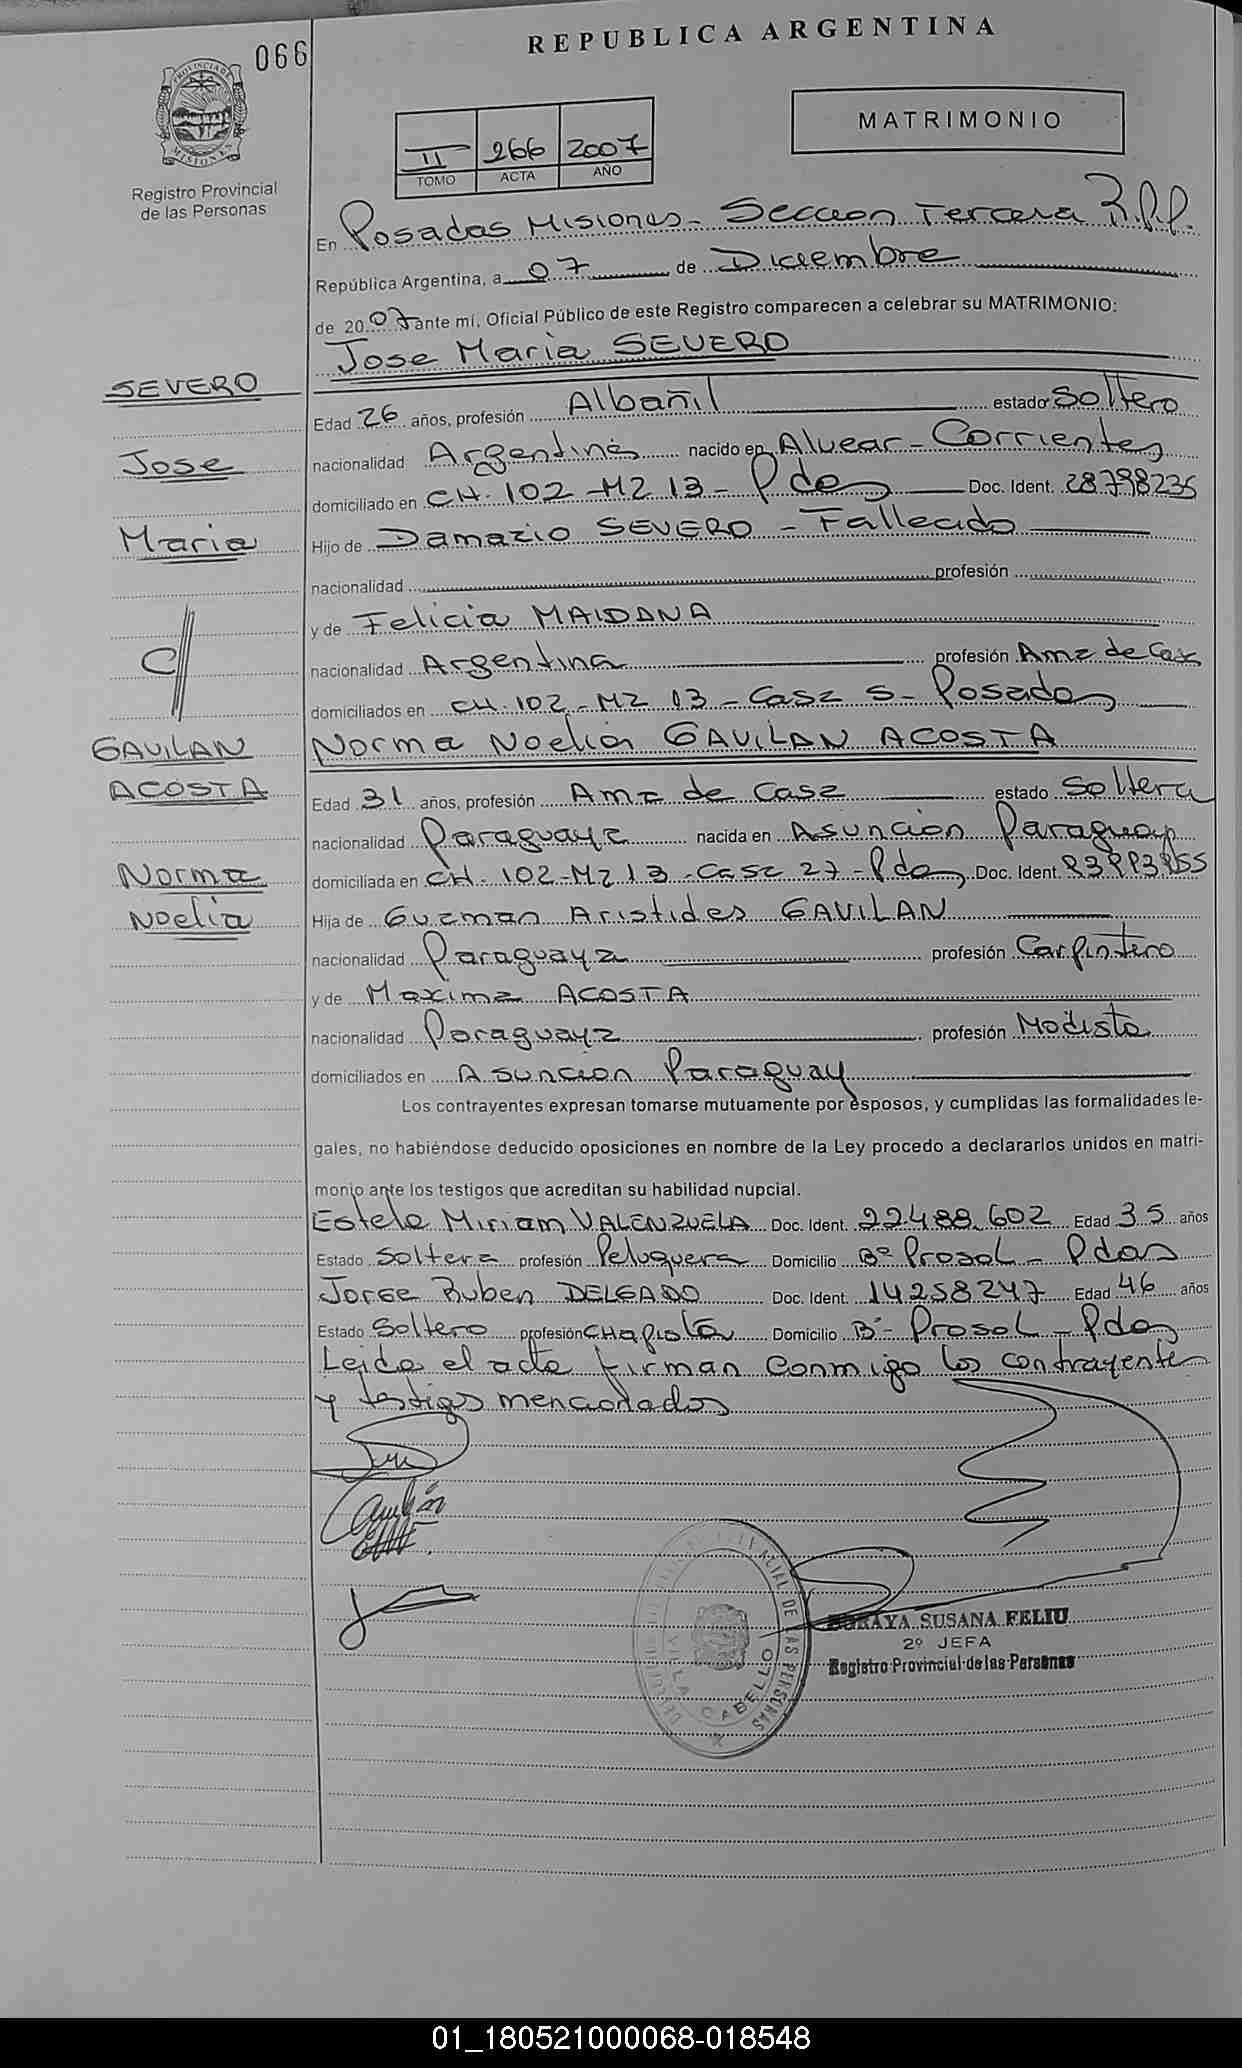 066
REPUBLICA ARGENTINA
PROVINCIA DE MISIONES
Registro Provincial
de las Personas
II 266 2007
TOMO ACTA AÑO
MATRIMONIO
En Posadas Misiones - Seccion Tercera R.P.P.
República Argentina, a 07 de Diciembre
de 2007 ante mí, Oficial Público de este Registro comparecen a celebrar su MATRIMONIO:
Jose Maria SEVERO
SEVERO
Edad 26 años, profesión Albañil estado Soltero
Jose
nacionalidad Argentina nacido en Alvear - Corrientes
domiciliado en CH. 102 - MZ 13 - Pdas Doc. Ident. 28798235
Maria
Hijo de Damazio SEVERO - Fallecido
nacionalidad profesión
y de Felicia MAIDANA
C/
nacionalidad Argentina profesión Ama de Casa
domiciliados en CH. 102 - MZ 13 - Casa 5 - Posadas
GAVILAN
Norma Noelia GAVILAN ACOSTA
ACOSTA
Edad 31 años, profesión Ama de Casa estado Soltera
nacionalidad Paraguaya nacida en Asuncion Paraguay
Norma
domiciliada en CH. 102 - MZ 13 - Casa 27 - Pdas Doc. Ident.
Noelia
Hija de Guzman Aristides GAVILAN
nacionalidad Paraguaya profesión Carpintero
y de Maxima ACOSTA
nacionalidad Paraguaya profesión Modista
domiciliados en Asuncion Paraguay
Los contrayentes expresan tomarse mutuamente por esposos, y cumplidas las formalidades le-
gales, no habiéndose deducido oposiciones en nombre de la Ley procedo a declararlos unidos en matri-
monio ante los testigos que acreditan su habilidad nupcial.
Estela Miriam VALENZUELA Doc. Ident. 22.488.602 Edad 35 años
Estado Soltera profesión Peluquera Domicilio Bº Prosol - Pdas
Jorge Ruben DELGADO Doc. Ident. 14258247 Edad 46 años
Estado Soltero profesión Chapista Domicilio Bº - Prosol - Pdas
Leida el acta firman conmigo los contrayentes
y testigos mencionados
VILLA CABELLO
SORAYA SUSANA FELIU
2º JEFA
Registro Provincial de las Personas
01_180521000068-018548